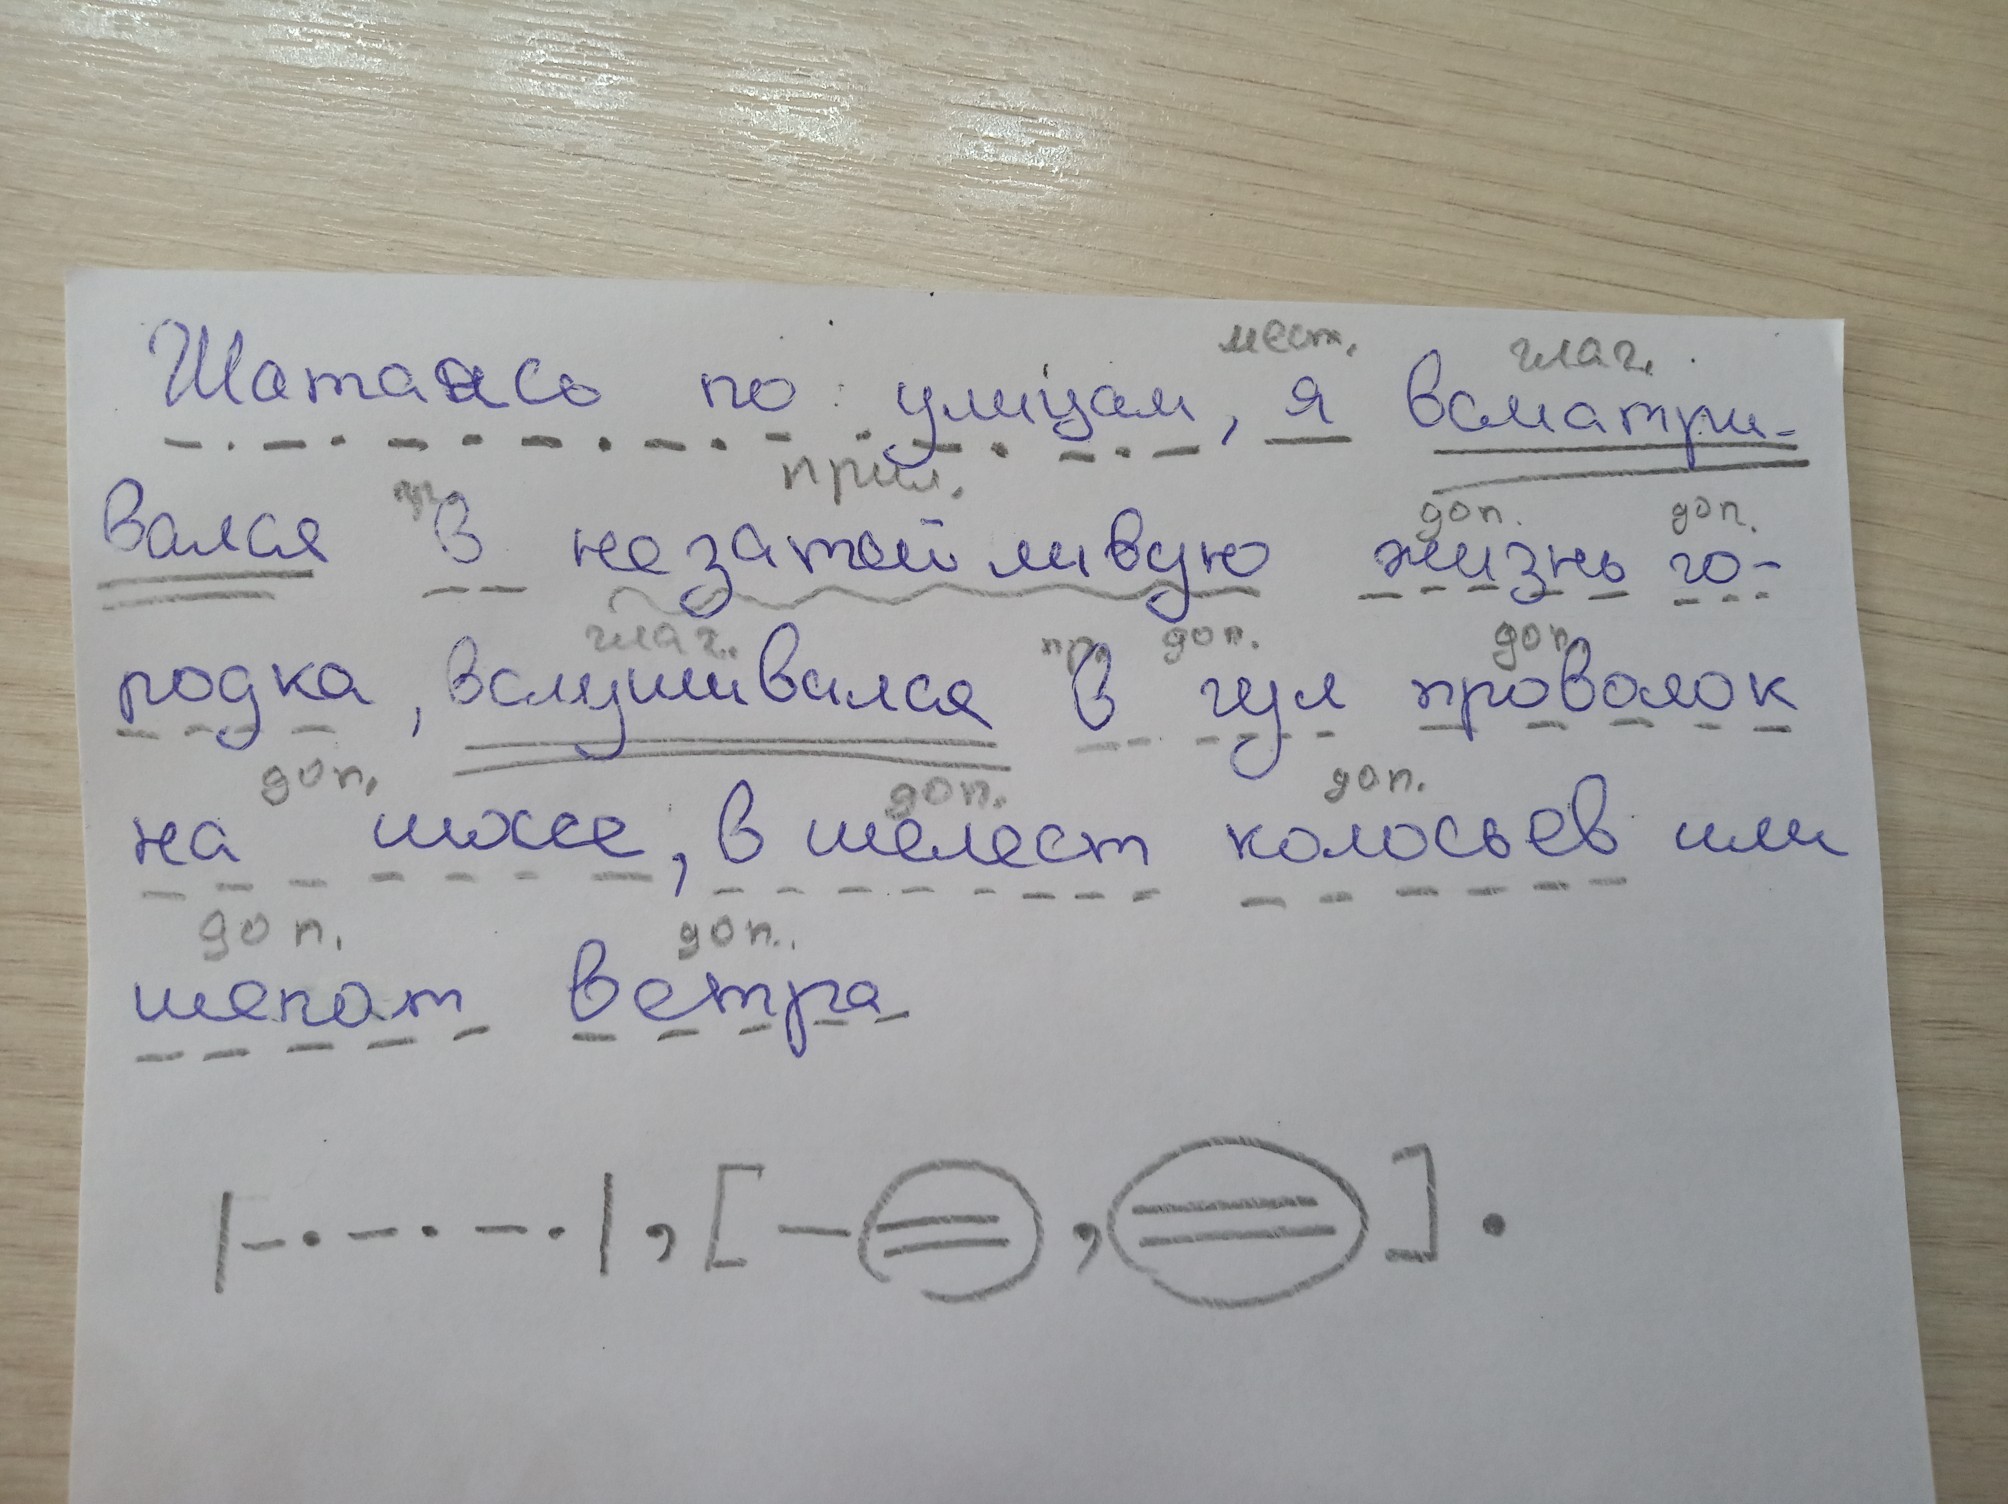 мест. глаг.
Шатаясь по улицам, я всматри-
пр. прил. доп. доп.
вался в незатейливую жизнь го-
глаг. пр. доп. доп.
родка, вслушивался в гул проволок
доп. доп. доп.
на шоссе, в шелест колосьев или
доп. доп.
шепот ветра
|–·–·–·|, [– =, =].